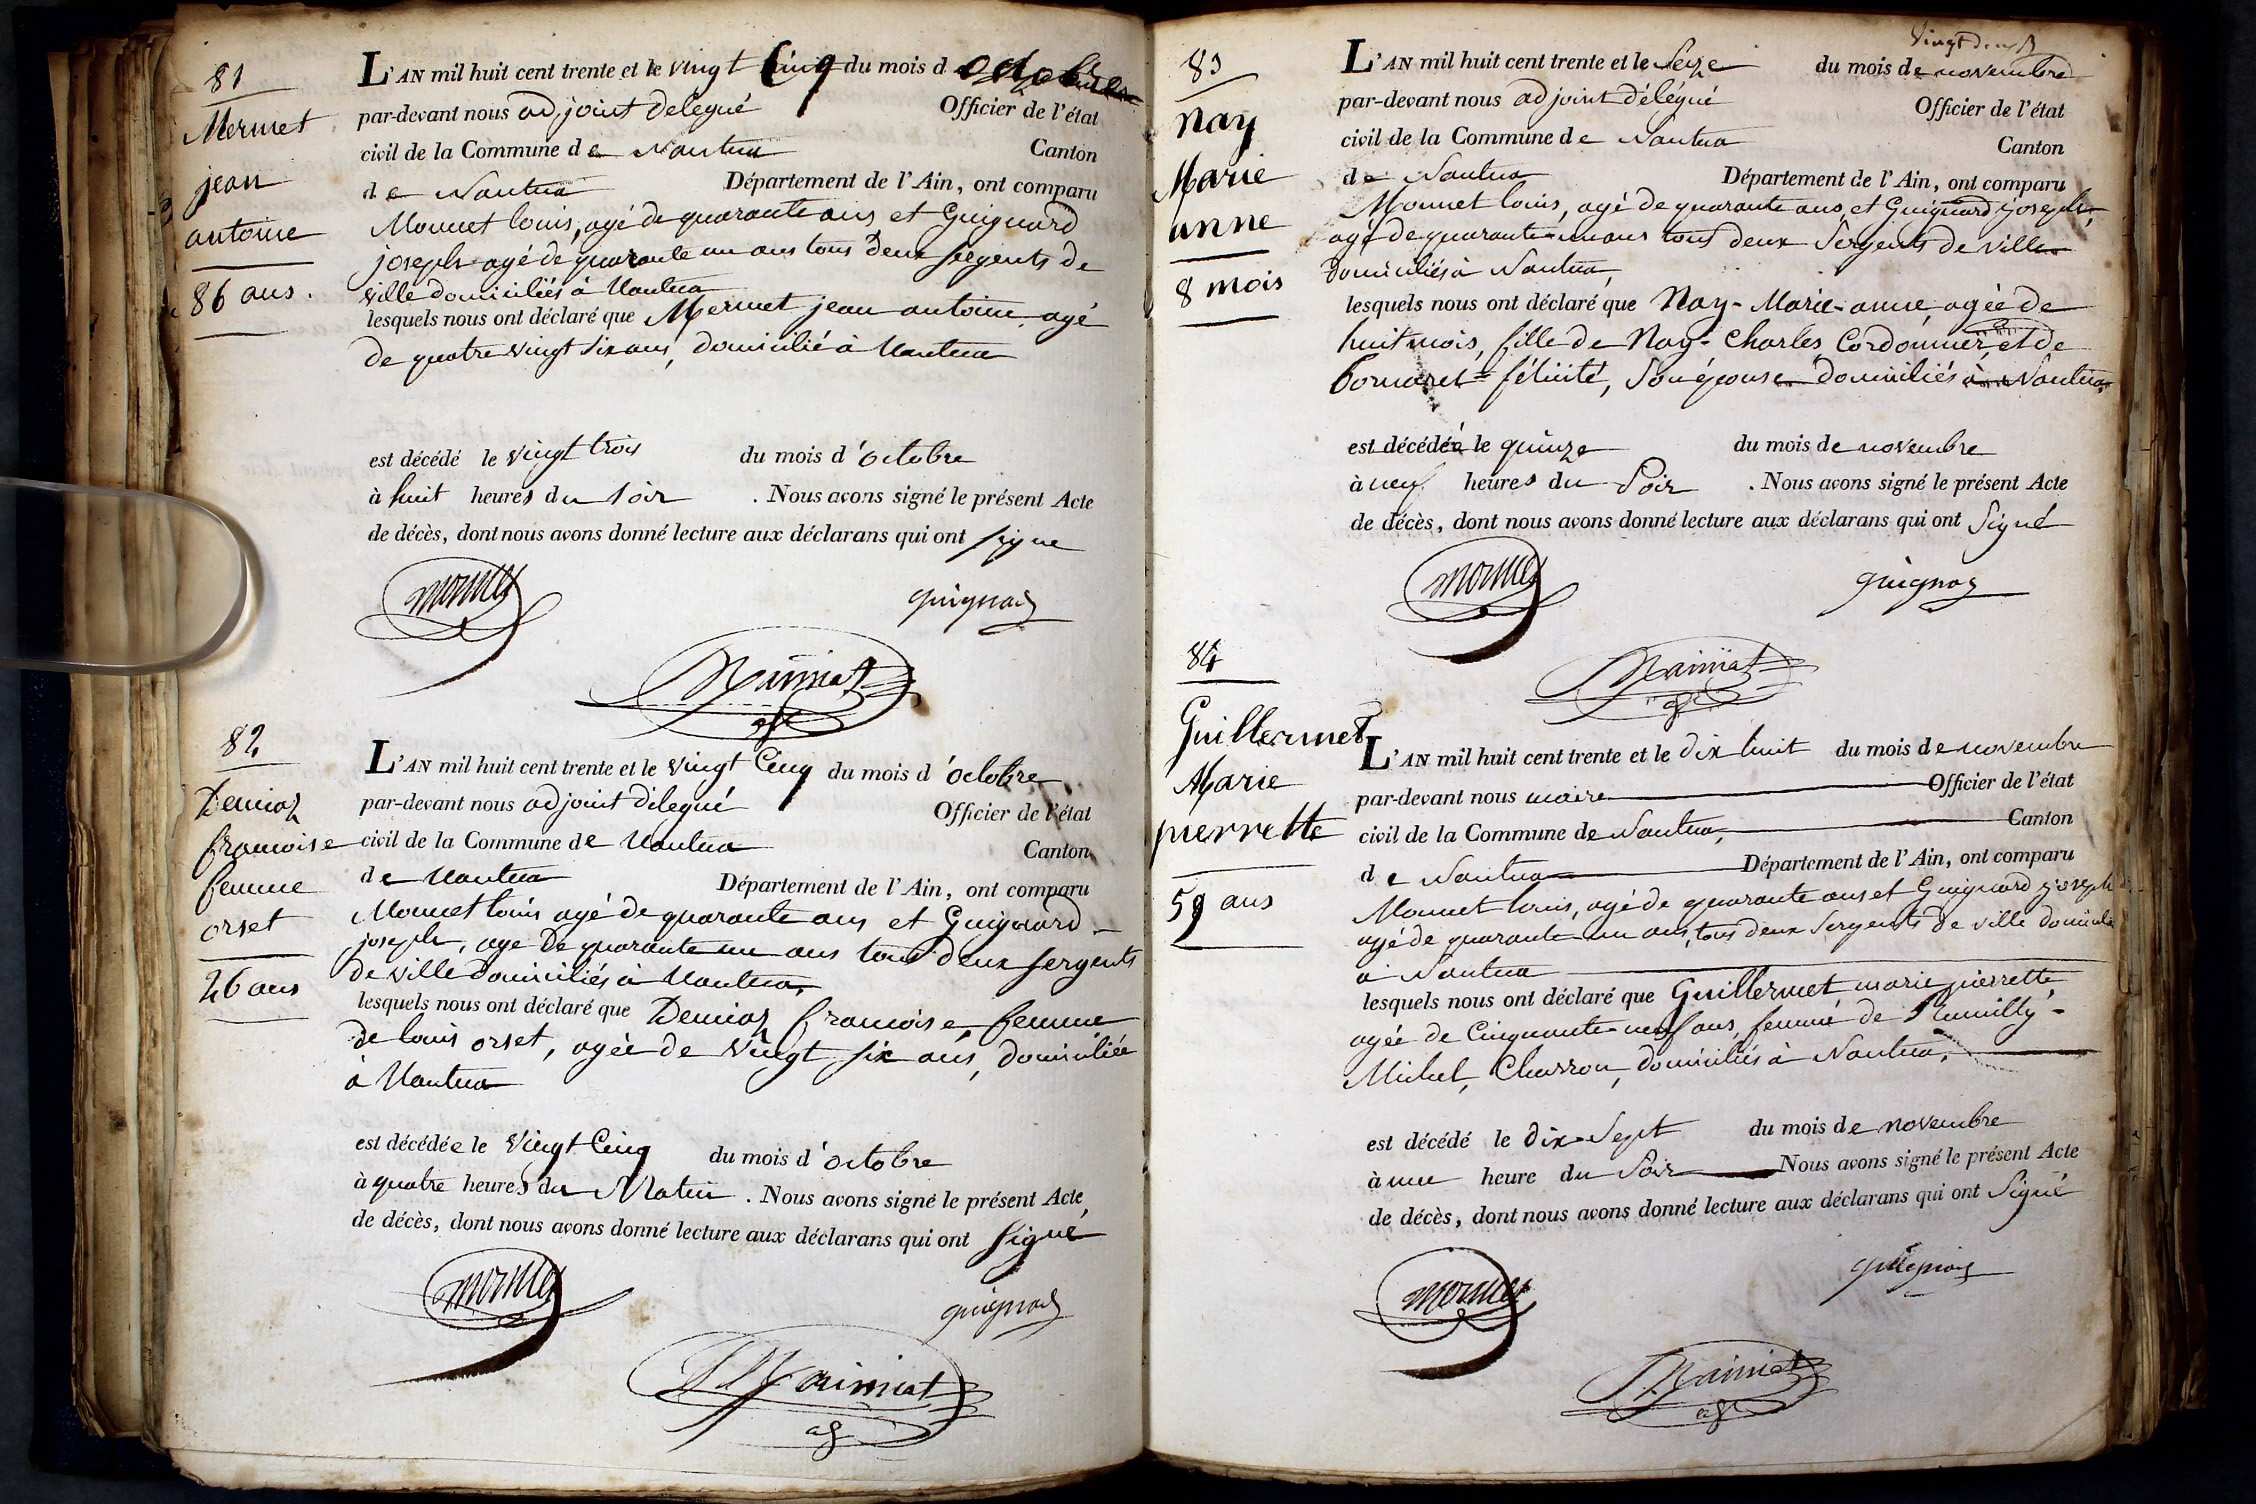 81
Mermet
jean
antoine
86 ans.
L'AN mil huit cent trente et le vingt Cinq du mois d'octobre
par-devant nous adjoint délégué Officier de l'état
civil de la Commune de Nantua Canton
de Nantua Département de l'Ain, ont comparu
Monnet louis, agé de quarante ans et Guignard
joseph agé de quarante un ans tous deux sergents de
ville domiciliés à Nantua
lesquels nous ont déclaré que Mermet jean antoine, agé
de quatre vingt six ans, domicilié à Nantua
est décédé le vingt trois du mois d'octobre
à huit heures du soir. Nous avons signé le présent Acte
de décès, dont nous avons donné lecture aux déclarans qui ont signé
monnet
guignard
82
Demiaz
francoise
femme
orset
26 ans
L'AN mil huit cent trente et le vingt Cinq du mois d'octobre
par-devant nous adjoint délégué Officier de l'état
civil de la Commune de Nantua Canton
de Nantua Département de l'Ain, ont comparu
Monnet louis agé de quarante ans et Guignard
joseph, agé de quarante un ans tous deux sergents
de ville domiciliés à Nantua,
lesquels nous ont déclaré que Demiaz francoise, femme
de louis orset, agée de vingt six ans, domiciliée
à Nantua
est décédée le vingt Cinq du mois d'octobre
à quatre heures du Matin. Nous avons signé le présent Acte,
de décès, dont nous avons donné lecture aux déclarans qui ont signé
monnet
guignard
vingt deux
83
Nay
Marie
anne
8 mois
L'AN mil huit cent trente et le Seize du mois de novembre
par-devant nous adjoint délégué Officier de l'état
civil de la Commune de Nantua Canton
de Nantua Département de l'Ain, ont comparu
Monnet louis, agé de quarante ans et Guignard joseph,
agé de quarante un ans tous deux Sergents de ville
domiciliés à Nantua,
lesquels nous ont déclaré que Nay Marie-anne, agée de
huit mois, fille de Nay Charles, Cordonnier, et de
félicité, son épouse domiciliés à Nantua,
est décédée le quinze du mois de novembre
à neuf heures du Soir. Nous avons signé le présent Acte
de décès, dont nous avons donné lecture aux déclarans qui ont Signé
monnet
guignard
84
Guillermet
Marie
pierrette
59 ans
L'AN mil huit cent trente et le dix huit du mois de novembre
par-devant nous maire Officier de l'état
civil de la Commune de Nantua, Canton
de Nantua Département de l'Ain, ont comparu
Monnet louis, agé de quarante ans et Guignard joseph
agé de quarante un ans, tous deux Sergents de ville domiciliés
à Nantua
lesquels nous ont déclaré que Guillermet marie pierrette
agée de Cinquante-neuf ans, femme de Rumilly
Michel, Charron, domiciliés à Nantua,
est décédé le dix-Sept du mois de novembre
à une heure du Soir Nous avons signé le présent Acte
de décès, dont nous avons donné lecture aux déclarans qui ont Signé
monnet
guignard